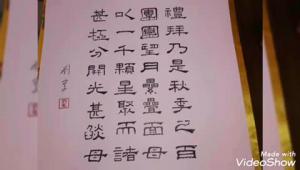 禮拜乃是秋季已百
團團望月疊疊面母
以一千顆星聚而諸
甚極分開光甚燄母
Made with
VideoShow